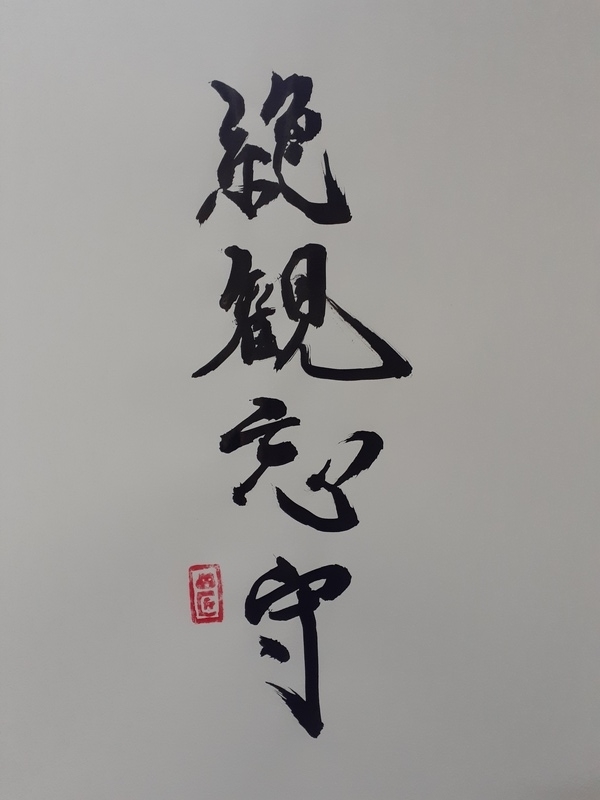 絶観忘守